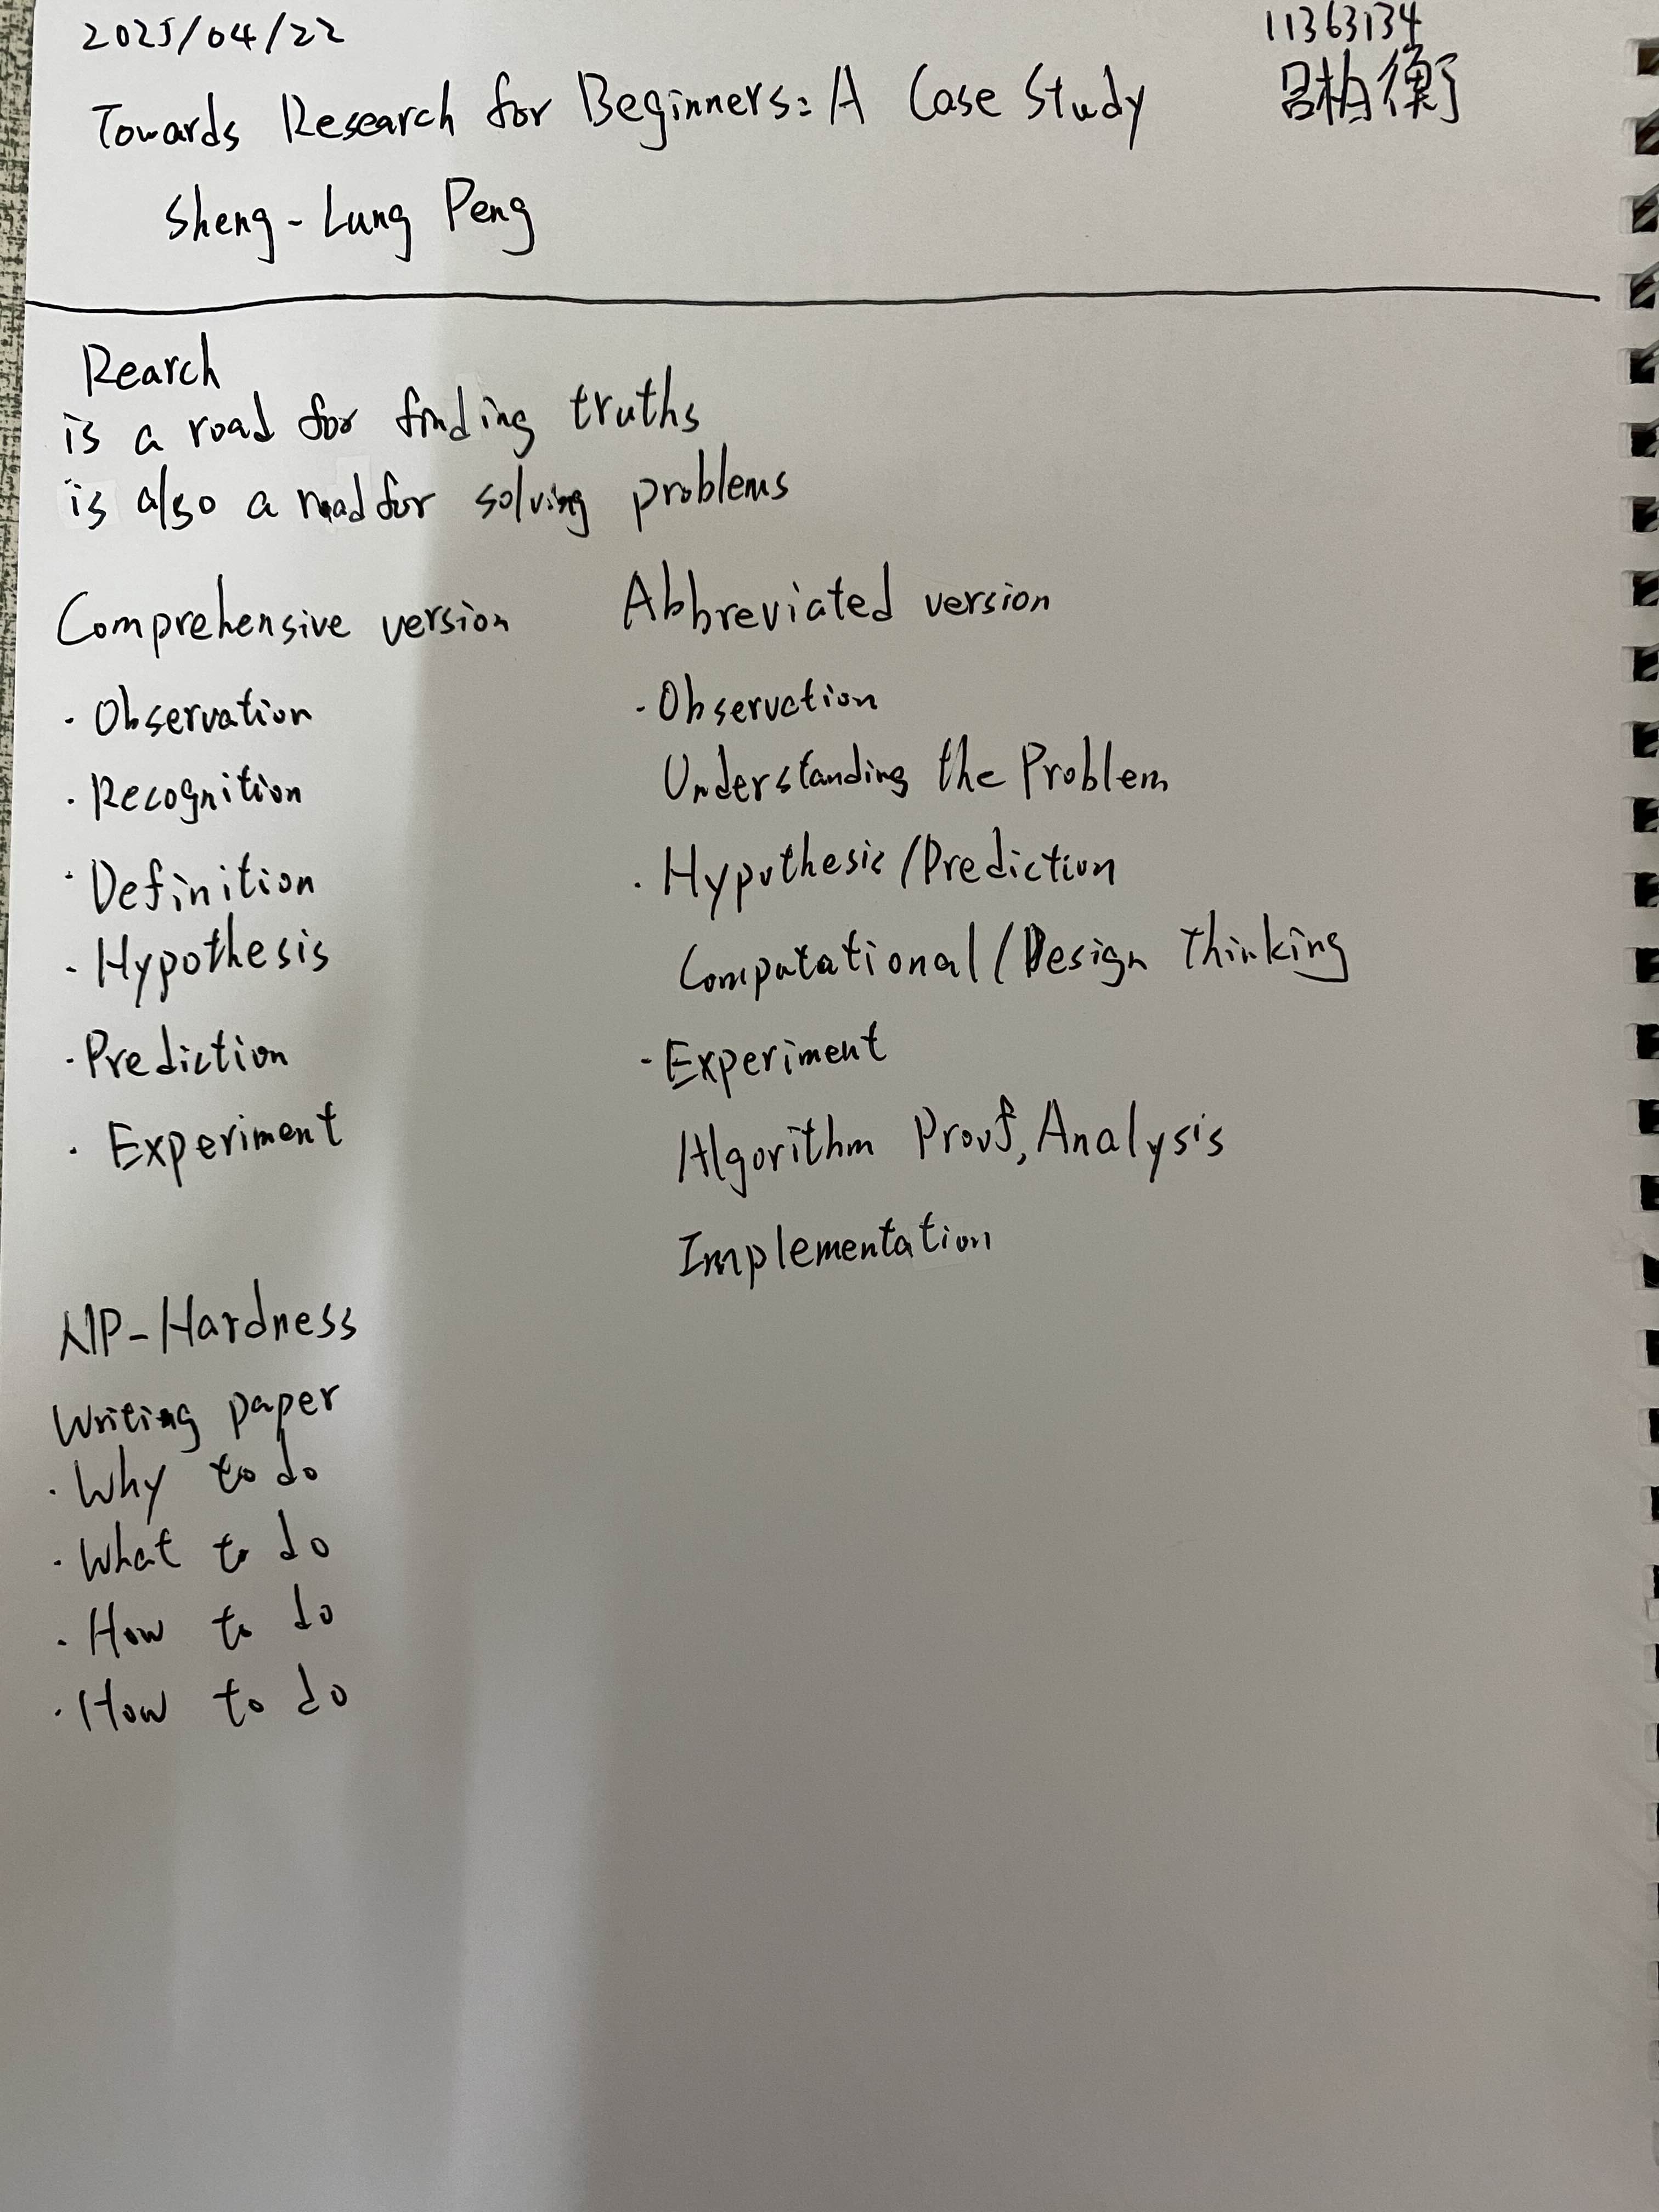 2025/04/22
11363134
Towards Research for Beginners: A Case Study
呂柏衡
Sheng-Lung Peng
Rearch
is a road for finding truths
is also a road for solving problems
Comprehensive version
· Observation
· Recognition
· Definition
· Hypothesis
· Prediction
· Experiment
Abbreviated version
· Observation
Understanding the Problem
· Hypothesis/Prediction
Computational/Design Thinking
· Experiment
Algorithm Proof, Analysis
Implementation
NP-Hardness
Writing paper
· Why to do
· What to do
· How to do
· How to do